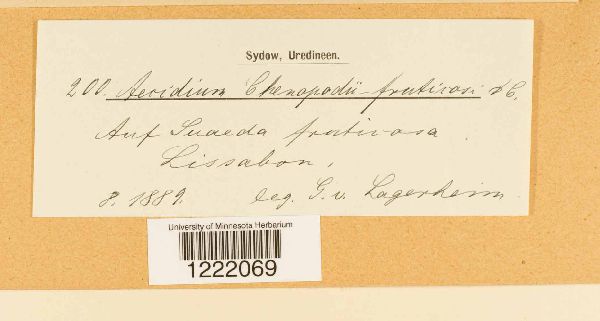 Sydow, Uredineen.
200. Aecidium Chenopodii-fruticosi DC.
Auf Suaeda fruticosa.
Lissabon,
8. 1889. leg. G. v. Lagerheim.
University of Minnesota Herbarium
1222069